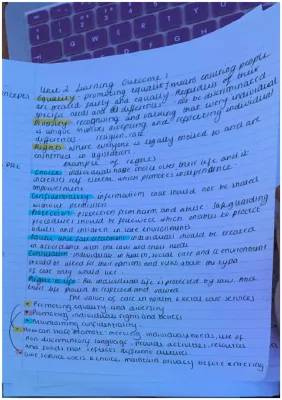 Unit 2 Learning Outcome 1
Equality: promoting equality means ensuring people
are treated fairly and equally regardless of their
specific needs and differences. not be discriminated
Diversity recognising and valuing that every individual
is unique means accepting and respecting individual
differences. religion, race
Rights where everyone is legally entitled to and are
enforced in legislation.
example of rights
Choices individuals have control over their life and it
increases self esteem which promotes independence
empowerment
Confidentiality information should not be shared
without permission
Protection protection from harm and abuse. Safeguarding
procedures should be followed which enables to protect
adults and children in care environments
Equal and fair treatment individuals should be treated
in accordance with the law and their needs
Consultation individual in health, social care and environment
should be asked for their opinions and views about the type
of care they would like
Right to life An individual life is protected by law, their
must be respected and valued
The values of care in health & social care services
Promoting equality and diversity
Promoting individual rights and beliefs
Maintaining confidentiality
meeting individuals needs, use of
non discriminatory language. Provide activities, resources
and foods that reflects different cultures
care service users service, maintain privacy before entering